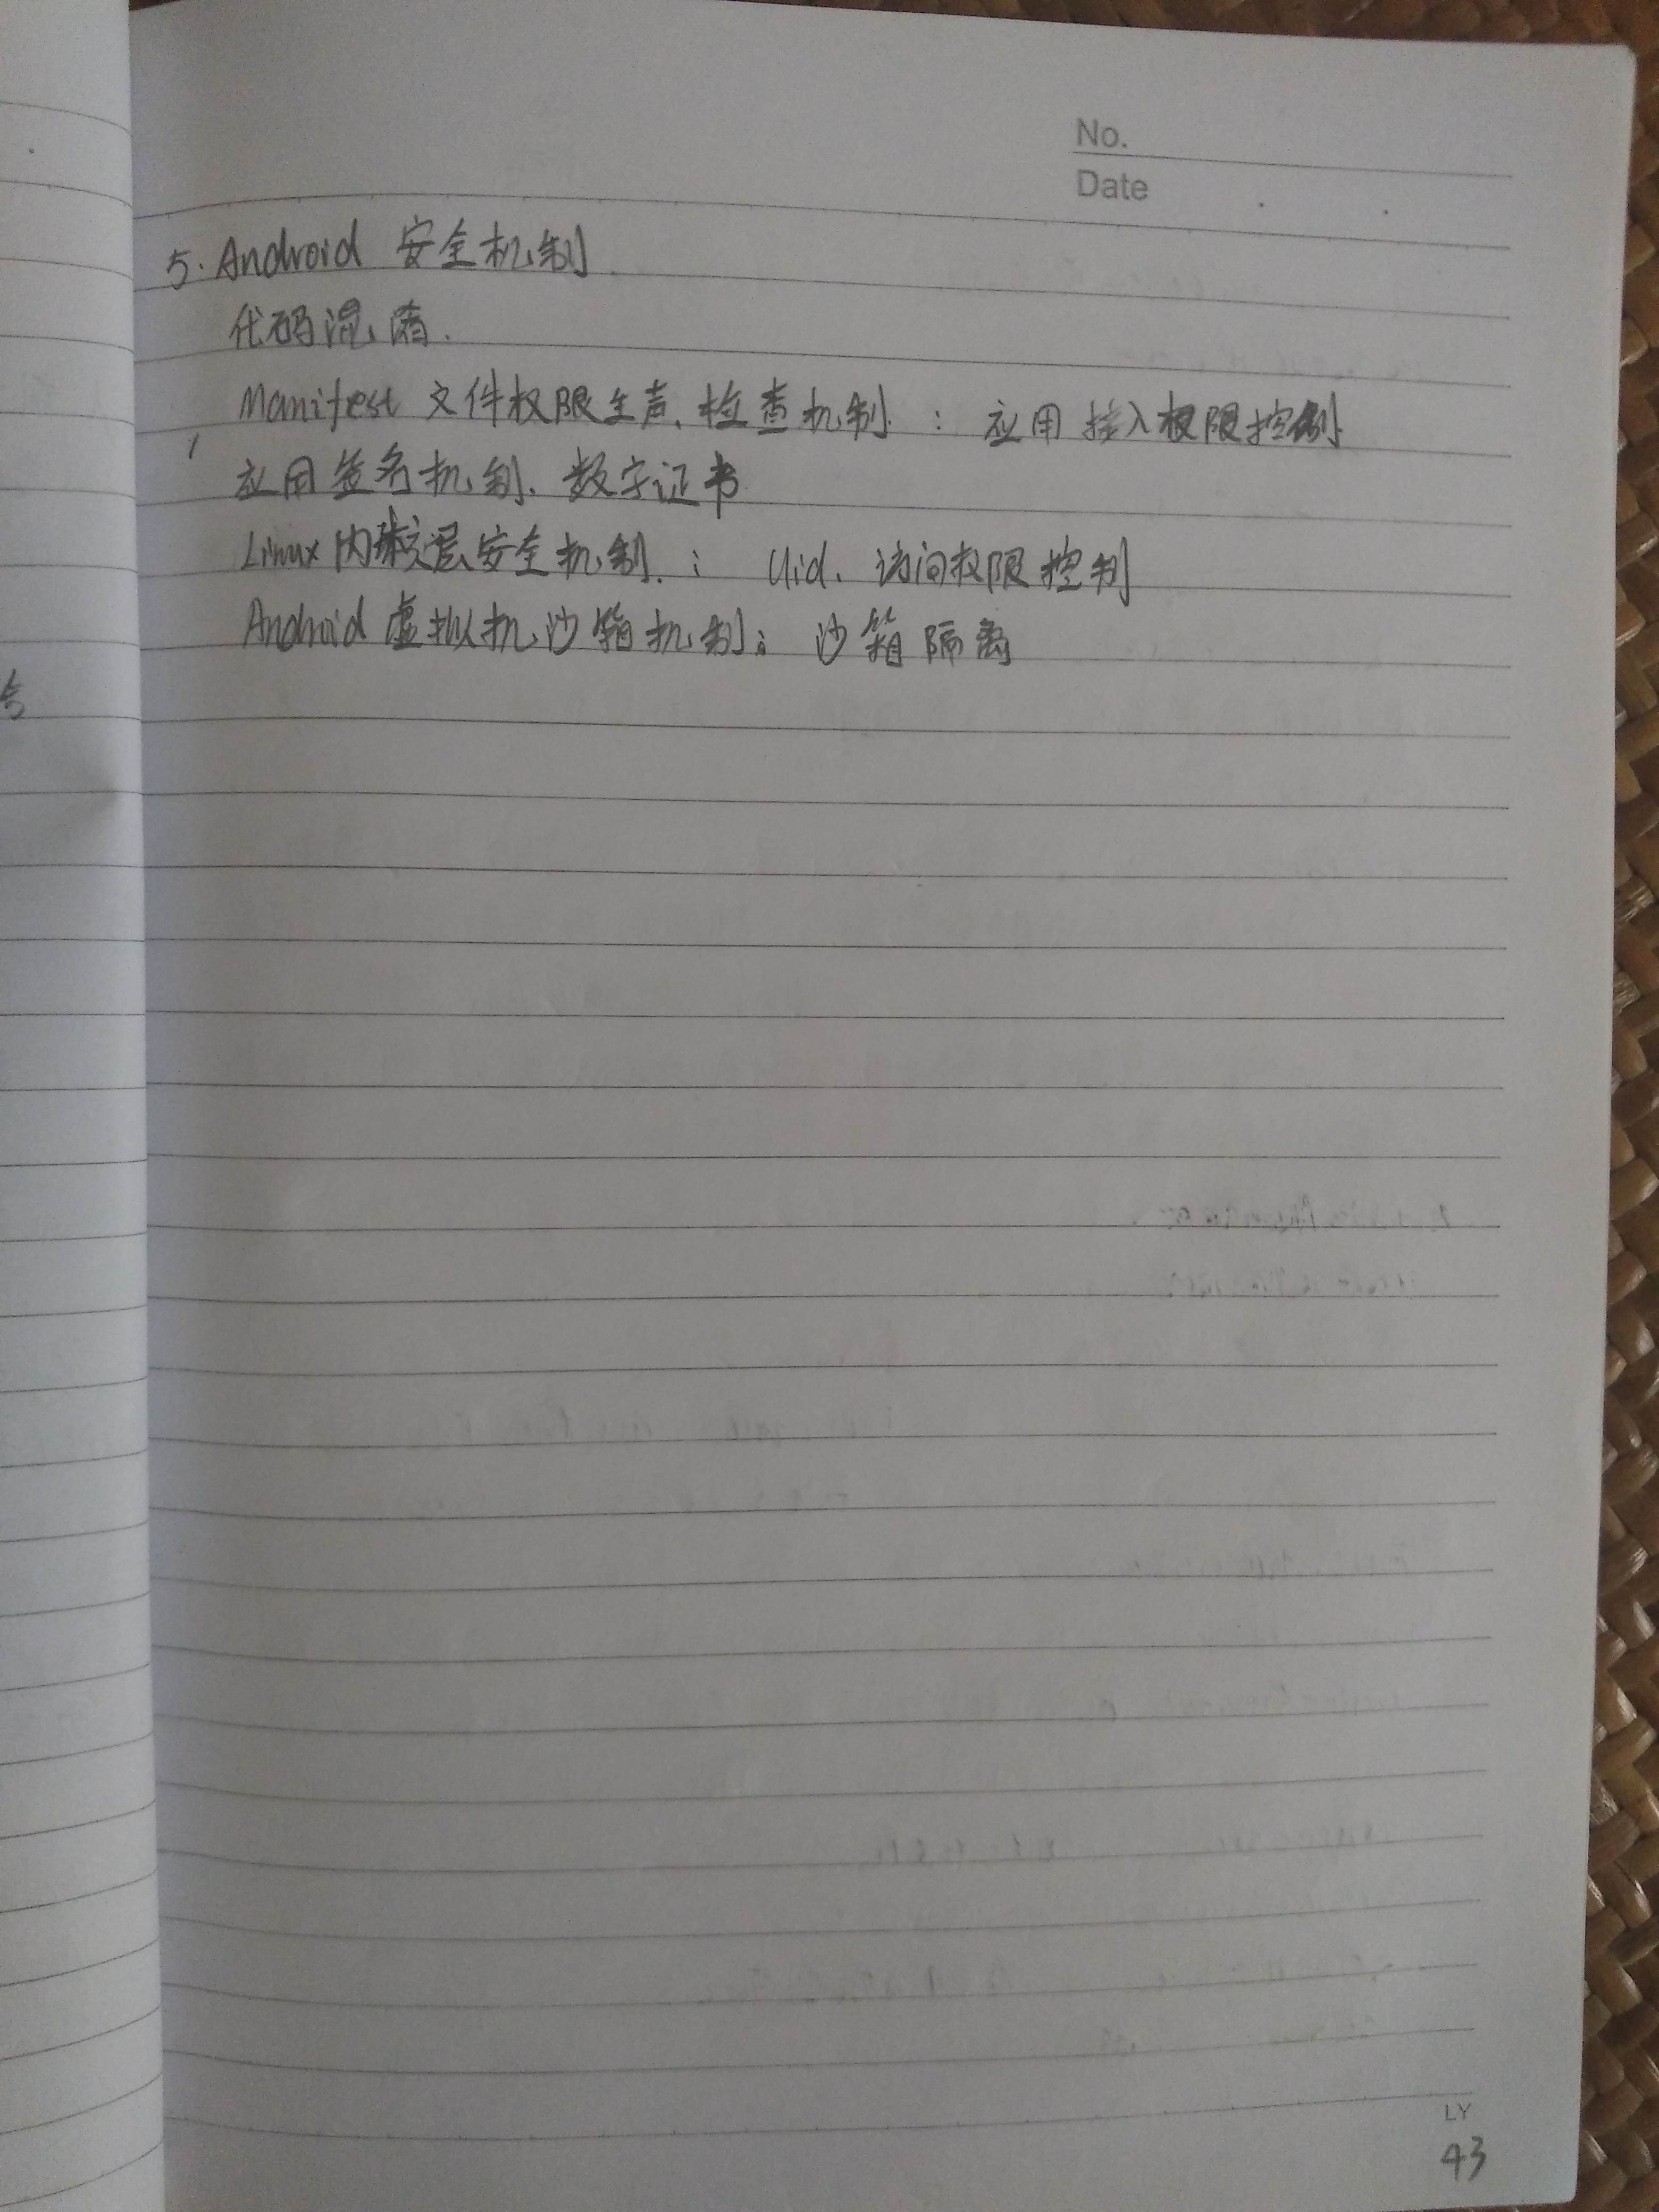 No.
Date
5. Android 安全机制.
代码混淆.
Manifest 文件权限生声、检查机制 : 应用接入权限控制
应用签名机制、数字证书
Linux 内核层安全机制. : Uid、访问权限控制
Android 虚拟机沙箱机制: 沙箱隔离
LY
43